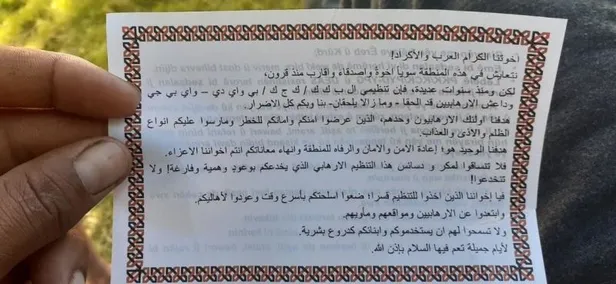 إخوتنا الكرام العرب والأكراد!
نتعايش في هذه المنطقة سويا أخوة وأصدقاء وأقارب منذ قرون،
لكن ومنذ سنوات عديدة، فإن تنظيمي ال ب ك ك / ك ج ك / بي واي دي – واي بي جي
وداعش الإرهابيين قد ألحقا - وما زالا يلحقان- بنا وبكم كل الأضرار.
هدفنا أولئك الإرهابيون وحدهم، الذين عرضوا أمنكم وأمانكم للخطر ومارسوا عليكم أنواع
الظلم والأذى والعذاب.
هدفنا الوحيد هو؛ إعادة الأمن والأمان والرفاه للمنطقة وإنهاء معاناتكم أنتم إخواننا الأعزاء.
فلا تنساقوا لمكر و دسائس هذا التنظيم الإرهابي الذي يخدعكم بوعود وهمية وفارغة! ولا
تنخدعوا!
فيا إخواننا الذين أخذوا للتنظيم قسرا؛ ضعوا أسلحتكم بأسرع وقت وعودوا لأهاليكم.
وابتعدوا عن الإرهابيين ومواقعهم ومأويهم.
ولا تسمحوا لهم أن يستخدموكم وأبنائكم كدروع بشرية.
لأيام جميلة تعم فيها السلام بإذن الله.